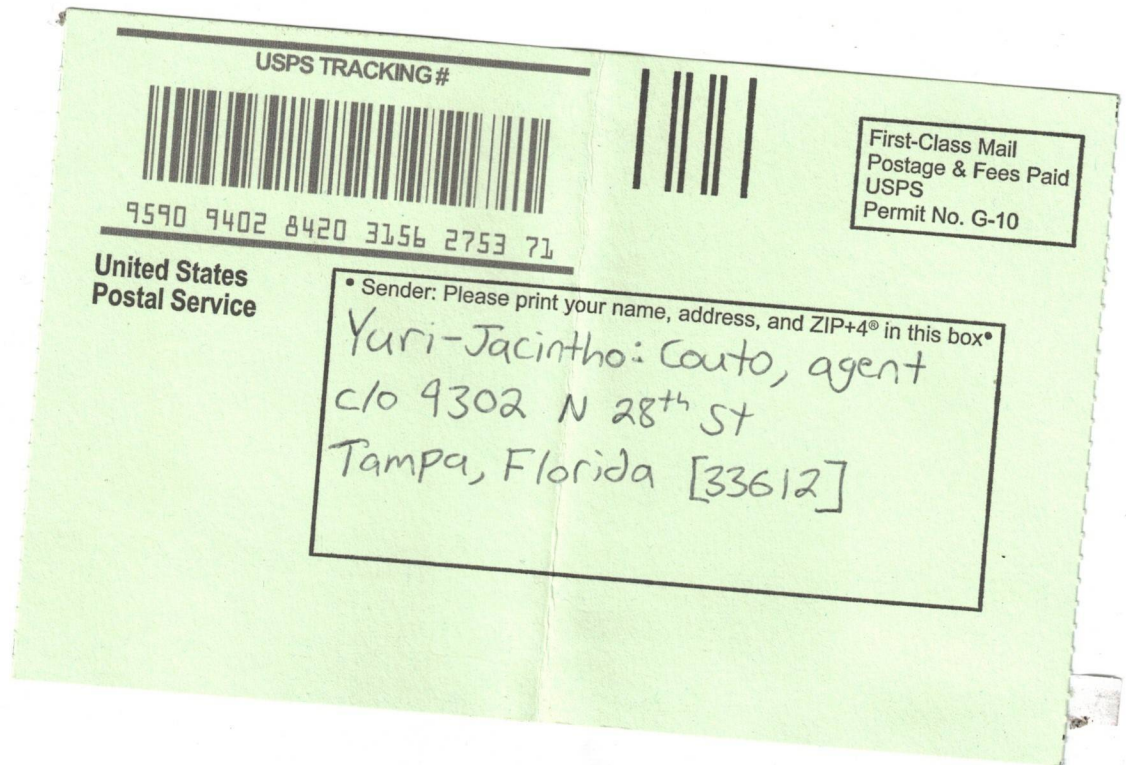 USPS TRACKING #
9590 9402 8420 3156 2753 71
First-Class Mail
Postage & Fees Paid
USPS
Permit No. G-10
United States
Postal Service
• Sender: Please print your name, address, and ZIP+4® in this box•
Yuri-Jacintho: Couto, agent
c/o 9302 N 28th St
Tampa, Florida [33612]